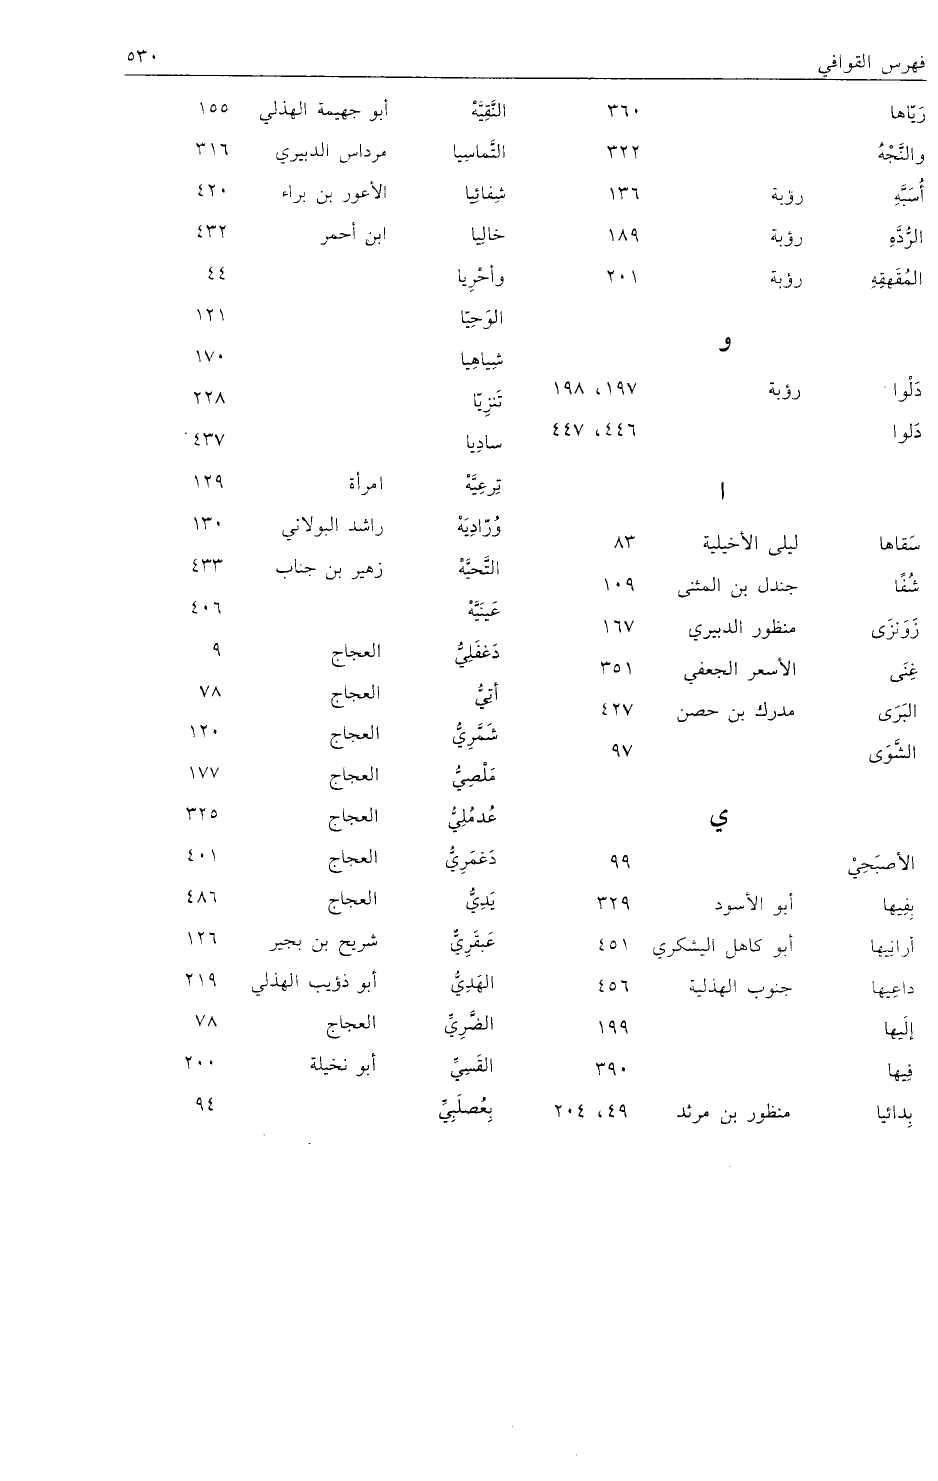 فهرس القوافي ٥٣٠
رَيّاها ٣٦٠
والنَّجْهُ ٣٢٢
أُسَبَّهِ رؤبة ١٣٦
الرُّدَّهِ رؤبة ١٨٩
المُقَهقِهِ رؤبة ٢٠١
و
دَلْوا رؤبة ١٩٧، ١٩٨
دَلوا ٤٤٦، ٤٤٧
ا
سَقاها ليلى الأخيلية ٨٣
شُفًا جندل بن المثنى ١٠٩
زَوَنزَى منظور الدبيري ١٦٧
غِنَى الأسعر الجعفي ٣٥١
البَرَى مدرك بن حصن ٤٢٧
الشَّوَى ٩٧
ي
الأصبَحِيْ ٩٩
بِفِيها أبو الأسود ٣٢٩
أرانِيها أبو كاهل اليشكري ٤٥١
داعِيها جنوب الهذلية ٤٥٦
إلَيها ١٩٩
فِيها ٣٩٠
بِدائيا منظور بن مرثد ٤٩، ٢٠٤
النَّقِيَّهْ أبو جهيمة الهذلي ١٥٥
التَّماسِيا مرداس الدبيري ٣١٦
شِفائِيا الأعور بن براء ٤٢٠
خالِيا ابن أحمر ٤٣٢
وأحْرِيا ٤٤
الوَحِيّا ١٢١
شِياهِيا ١٧٠
تَنزِيّا ٢٢٨
سادِيا ٤٣٧
تِرعِيَّهْ امرأة ١٢٩
وُرّادِيَهْ راشد البولاني ١٣٠
التَّحيَّهْ زهير بن جناب ٤٣٣
عَينَيَّهْ ٤٠٦
دَغفَلِيُّ العجاج ٩
أتِيُّ العجاج ٧٨
شَمَّرِيُّ العجاج ١٢٠
مَلْصِيُّ العجاج ١٧٧
عُدمُلِيُّ العجاج ٣٢٥
دَغمَرِيُّ العجاج ٤٠١
يَدِيُّ العجاج ٤٨٦
عَبقَرِيٌّ شريح بن بجير ١٢٦
الهَدِيُّ أبو ذؤيب الهذلي ٢١٩
الضَّرِيِّ العجاج ٧٨
القَسِيِّ أبو نخيلة ٢٠٠
بِعُصلَبِيِّ ٩٤